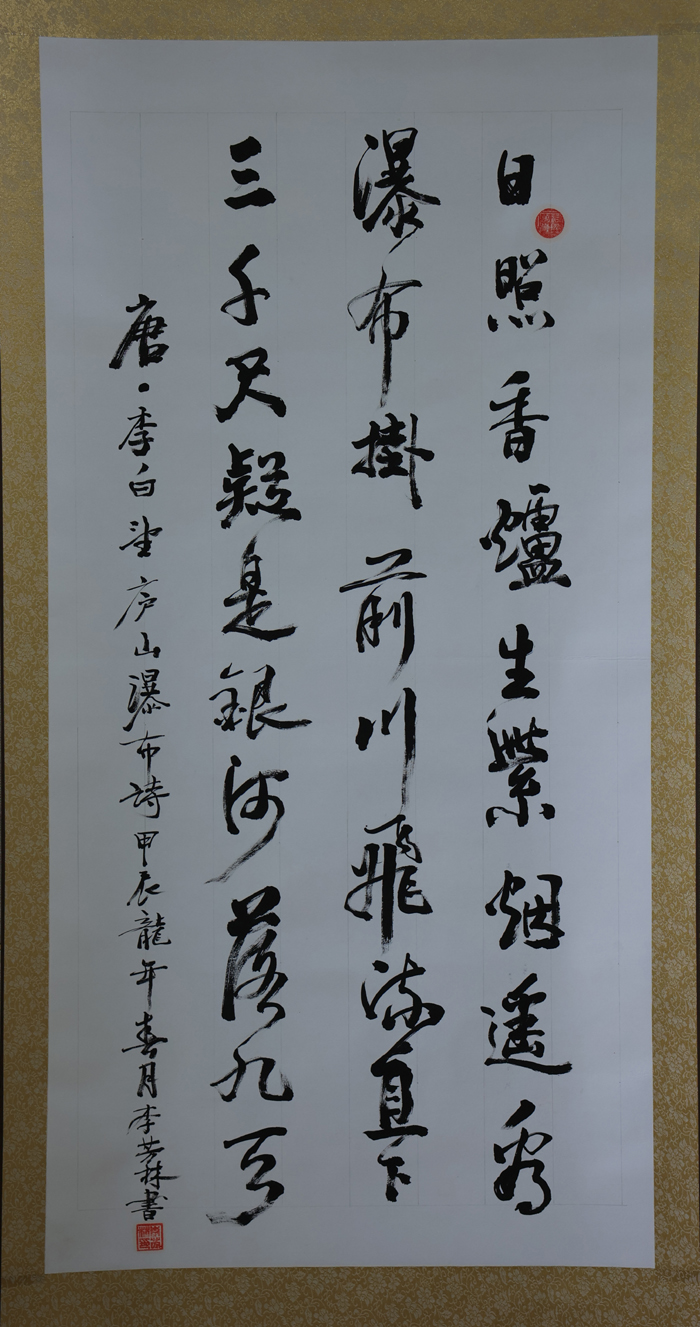 日照香爐生紫烟遥看
瀑布掛前川飛流直下
三千尺疑是銀河落九天
唐·李白望庐山瀑布詩甲辰龍年春月李芳林書